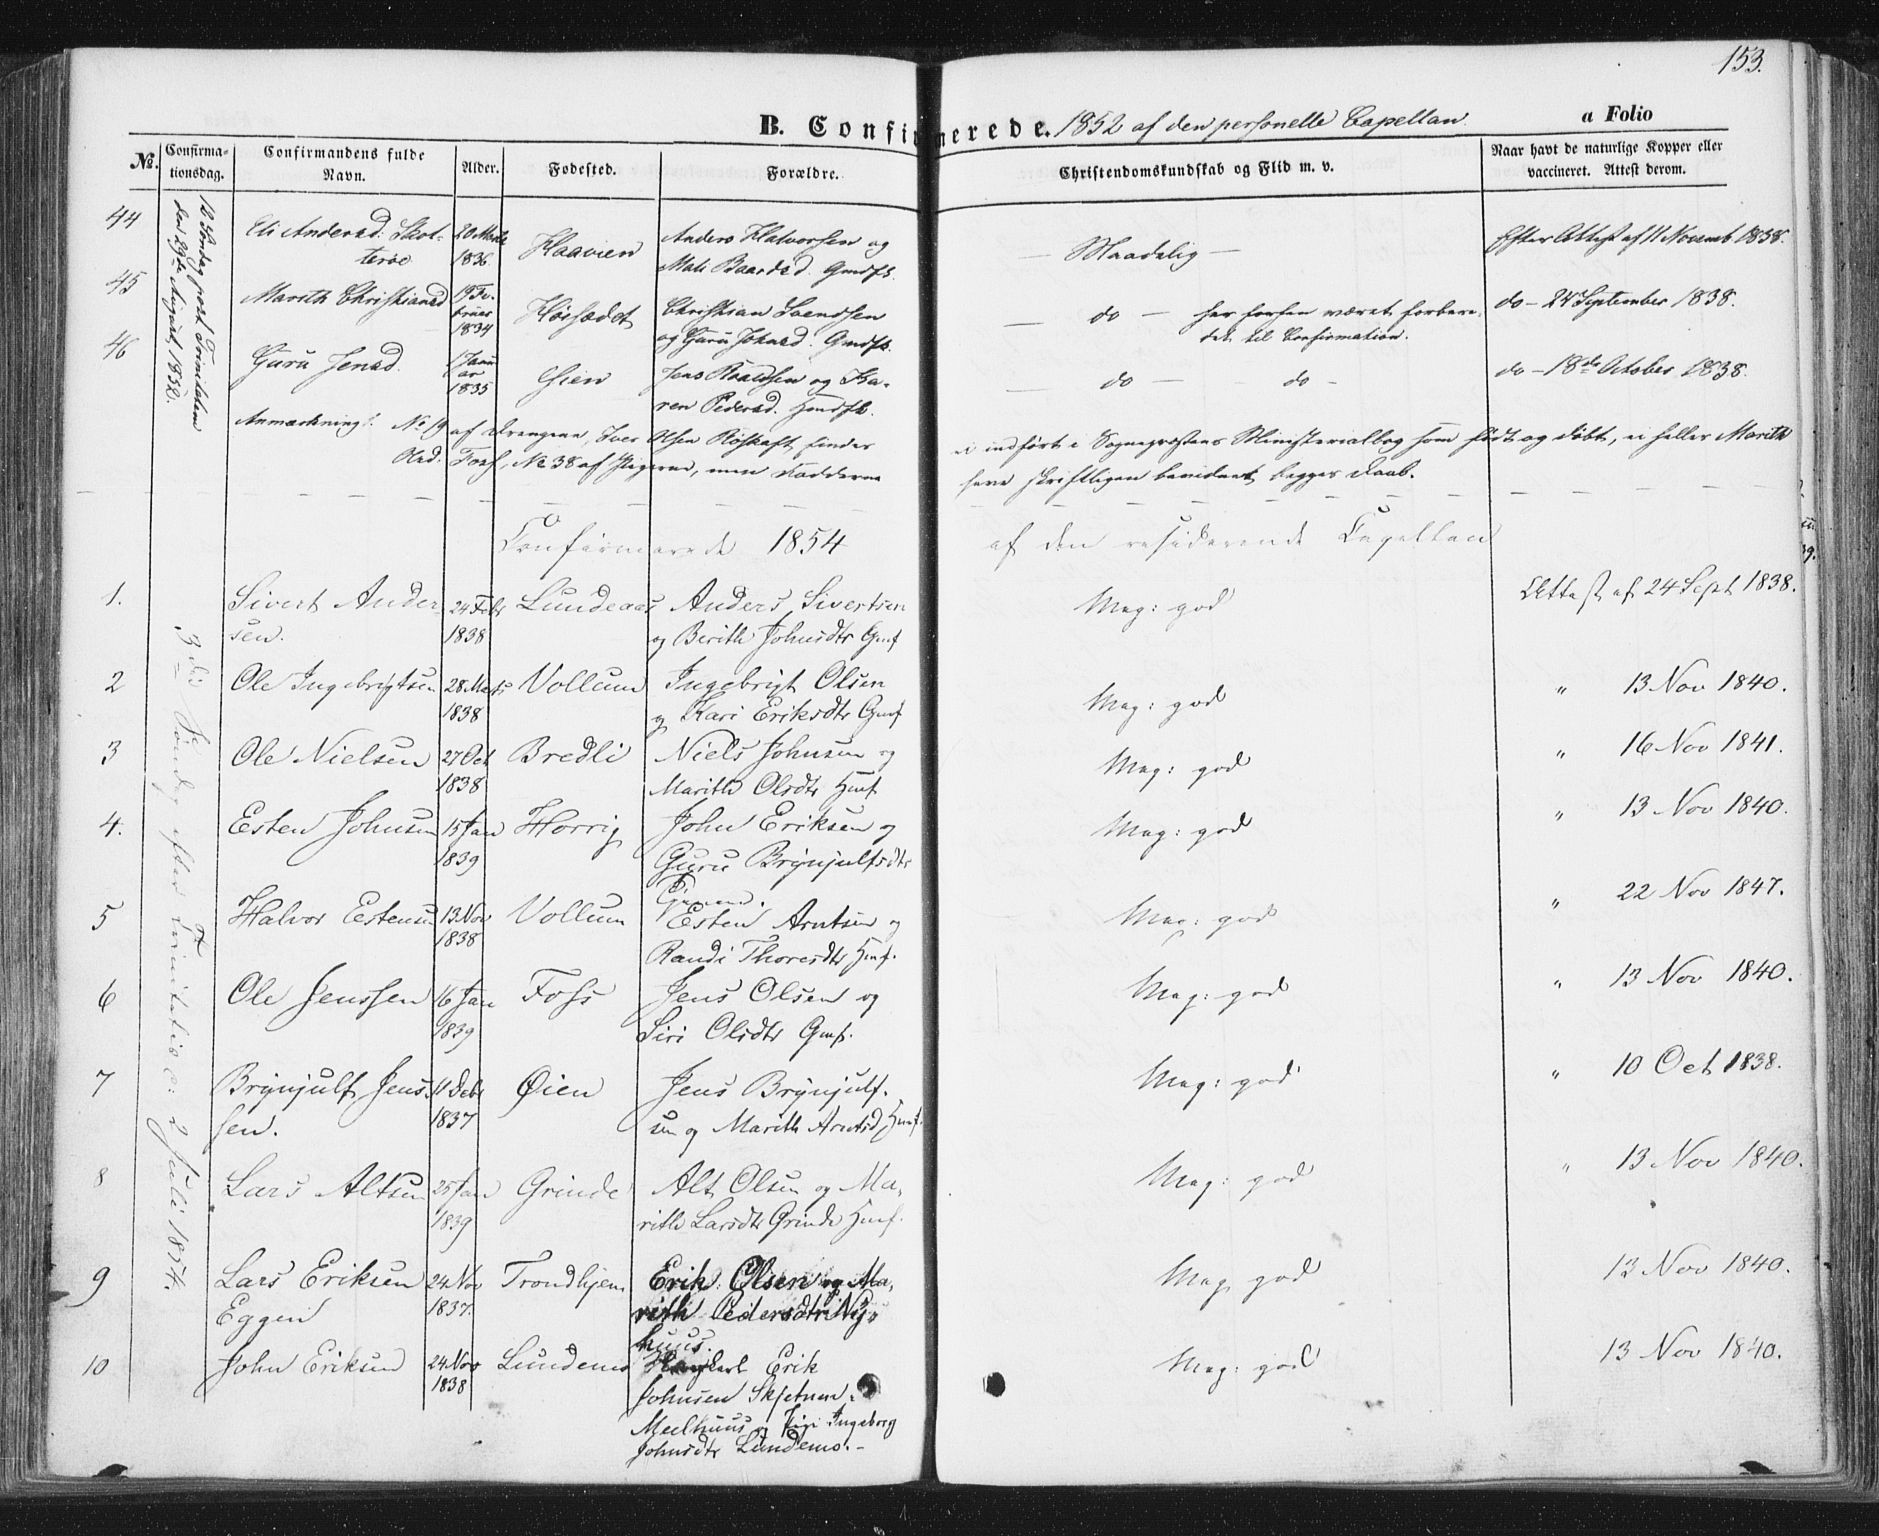 153.
B. Confirmerede. 1852 af den personelle Capellan. a Folio
No. Confirmationsdag. Confirmandens fulde Navn. Alder. Fødested. Forældre. Christendomskundskab og Flid m. v. Naar havt de naturlige Kopper eller vaccineret. Attest derom.
12 Søndag post Trinitatem
den 29de August 1852.
44 Eli Andersd: Skot- 20 Marts Haavien Anders Halvorsen og — Maadelig — Efter Attest af 11 Novemb 1838.
terøe 1836 Mali Baardsd. Gmdfk.
45 Marith Christiansd 19 Fe- Høisædet Christian Svendsen — do — har forhen været forbere- do — 24 September 1838.
bruar 1834 og Guru Johnsd. Gmdfk. det til Confirmation.
46 Guru Jensd. 1 Janu- Øien Jens Roaldsen og Ka- — do — do — do — 18de October 1838.
ar 1835 ren Pedersd. Hmdfk.
Anmærkning: No 19 af Drengene, Iver Olsen Røskaft findes ei indført i Sognepræstens Ministerialbog som født og døbt, ei heller Marith
Olsd. Foss, No 38 af Pigerne, men Fadderne have skriftligen bevidnet begges Daab.
Confirmerede 1854 af den residerende Capellan
3die Søndag efter Trinitatis d: 2 Juli 1854.
1. Sivert Ander 24 Febr Lundeaas Anders Sivertsen Meg: god Attest af 24 Sept 1838.
sen. 1838 og Berith Johnsdtr Gmf
2 Ole Ingebrigtsen 28 Marts Vollum Ingebrigt Olsen Meg: god " 13 Nov 1840.
1838 og Kari Eriksdtr Gmf
3 Ole Nielsen 27 Oct Bredli Niels Johnsen og Meg: god " 16 Nov 1841.
1838 Marith Olsdtr Hmf
4. Esten Johnsen 15 Jan Horrig John Eriksen og Meg: god " 13 Nov 1840.
1839 Guru Brynjulfsdtr
5 Halvor Estensen 13 Nov Vollum Esten Arntsen og Meg: god " 22 Nov 1847.
1838 Randi Thoresdtr Hmf.
6 Ole Jenssen 16 Jan Foss Jens Olsen og Meg: god " 13 Nov 1840.
1839 Siri Olsdtr Gmf.
7 Brynjulf Jens- 11 Decbr Øien Jens Brynjulf- Meg: god " 10 Oct 1838.
sen. 1837 sen og Marith Arntsd, Hmf.
8 Lars Altsen 25 Jan Grinde Alt Olsen og Ma- Meg: god " 13 Nov 1840.
1839 rith Larsdtr Grinde Hmf.
9 Lars Eriksen 24 Nov Trondhjem Erik Olsen og Ma- Meg god 13 Nov 1840.
Eggen 1837. rith Pedersdtr Ny-
huus.
10 John Eriksen 24 Nov Lundemo Ungkarl Erik Meg: god 13 Nov 1840.
1838 Johnsen Skjetnem-
Meelhuus og Pige Ingeborg
Johnsdtr Lundemo.-